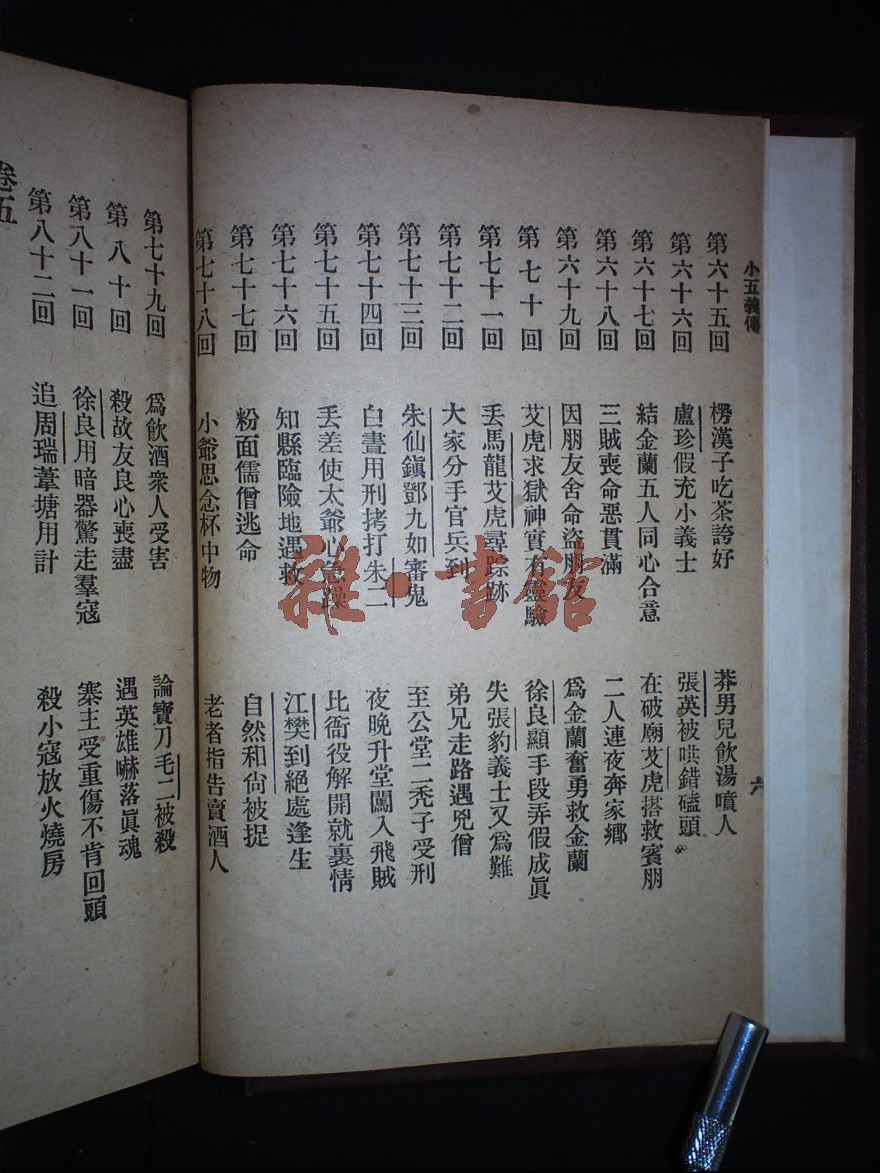 小五義傳
六
第六十五回 楞漢子吃茶誇好 莽男兒飲湯噴人
第六十六回 盧珍假充小義士 張英被哄錯磕頭
第六十七回 結金蘭五人同心合意 在破廟艾虎搭救賓朋
第六十八回 三賊喪命惡貫滿 二人連夜奔家鄉
第六十九回 因朋友舍命盜朋友 爲金蘭奮勇救金蘭
第七十回 艾虎求獄神實有靈驗 徐良顯手段弄假成眞
第七十一回 丢馬龍艾虎尋踪跡 失張豹義士又爲難
第七十二回 大家分手官兵到 弟兄走路遇兇僧
第七十三回 朱仙鎭鄧九如審鬼 至公堂二禿子受刑
第七十四回 白晝用刑拷打朱二 夜晚升堂闖入飛賊
第七十五回 丢差使太爺心急躁 比衙役解開就裏情
第七十六回 知縣臨險地遇救 江樊到絕處逢生
第七十七回 粉面儒僧逃命 自然和尙被捉
第七十八回 小爺思念杯中物 老者指告賣酒人
第七十九回 爲飮酒衆人受害 論寶刀毛二被殺
第八十回 殺故友良心喪盡 遇英雄嚇落眞魂
第八十一回 徐良用暗器驚走羣寇 寨主受重傷不肯回頭
第八十二回 追周瑞葦塘用計 殺小寇放火燒房
卷五
雜·書館